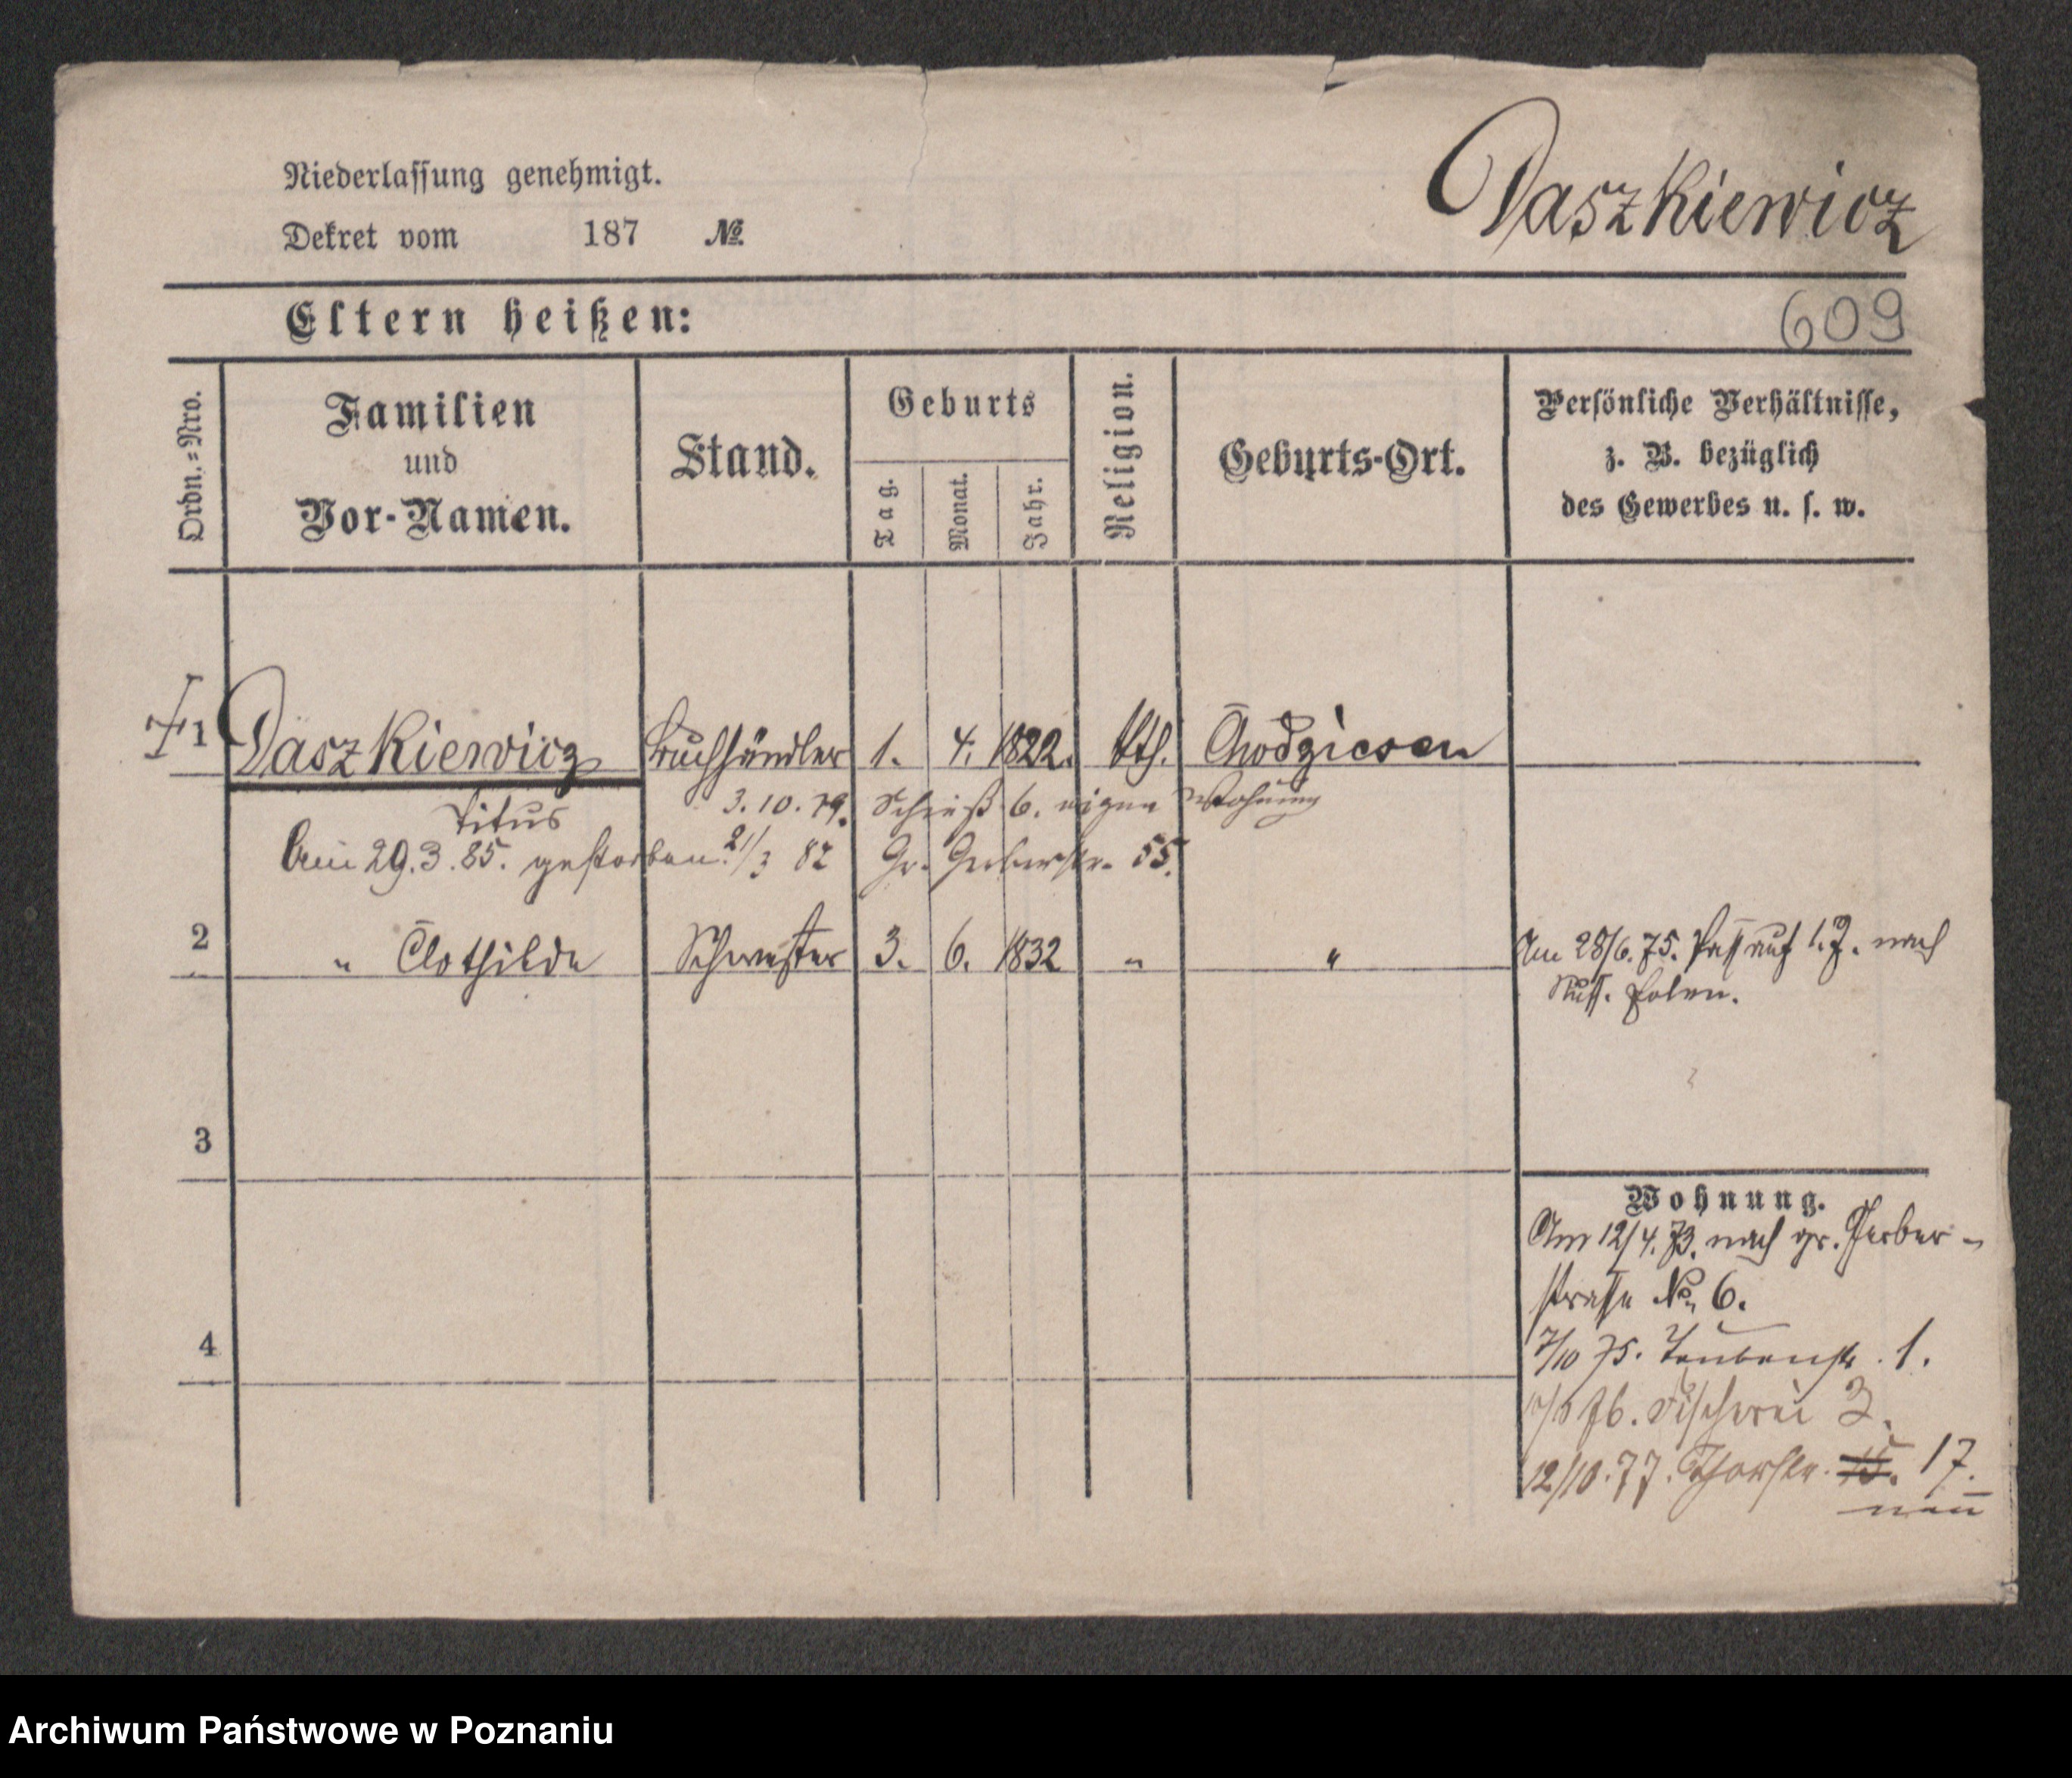 Niederlassung genehmigt.
Dekret vom 187 №
Daszkiewicz
Eltern heißen:
609
Ordn.=Nro.
Familien
und
Vor-Namen.
Stand.
Geburts
Tag.
Monat.
Jahr.
Religion.
Geburts-Ort.
Persönliche Verhältnisse,
z. B. bezüglich
des Gewerbes u. s. w.
1 Daszkiewicz Buchhändler 1. 4. 1822. kth. Chodziesen
Titus 3. 10. 79. Schieß 6. eigene Wohnung
Am 29.3.85. gestorben. 21/3 82 Gr. Gerberstr. 55.
2 " Clothilde Schwester 3. 6. 1832 " "
Am 28/6.75. Paß auf 1.J. nach
Russ. Polen.
3
Wohnung.
Am 12/4.73. nach gr. Gerber-
strasse No 6.
4
7/10 75. Taubenstr. 1.
76. Fischerei 3.
12/10.77. Thorstr. 15. 17.
neu
Archiwum Państwowe w Poznaniu